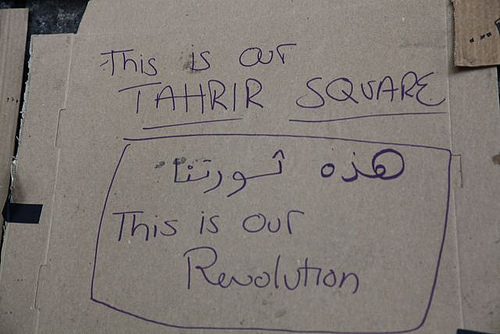 This is our
TAHRIR SQUARE
هذه ثورتنا
This is our
Revolution